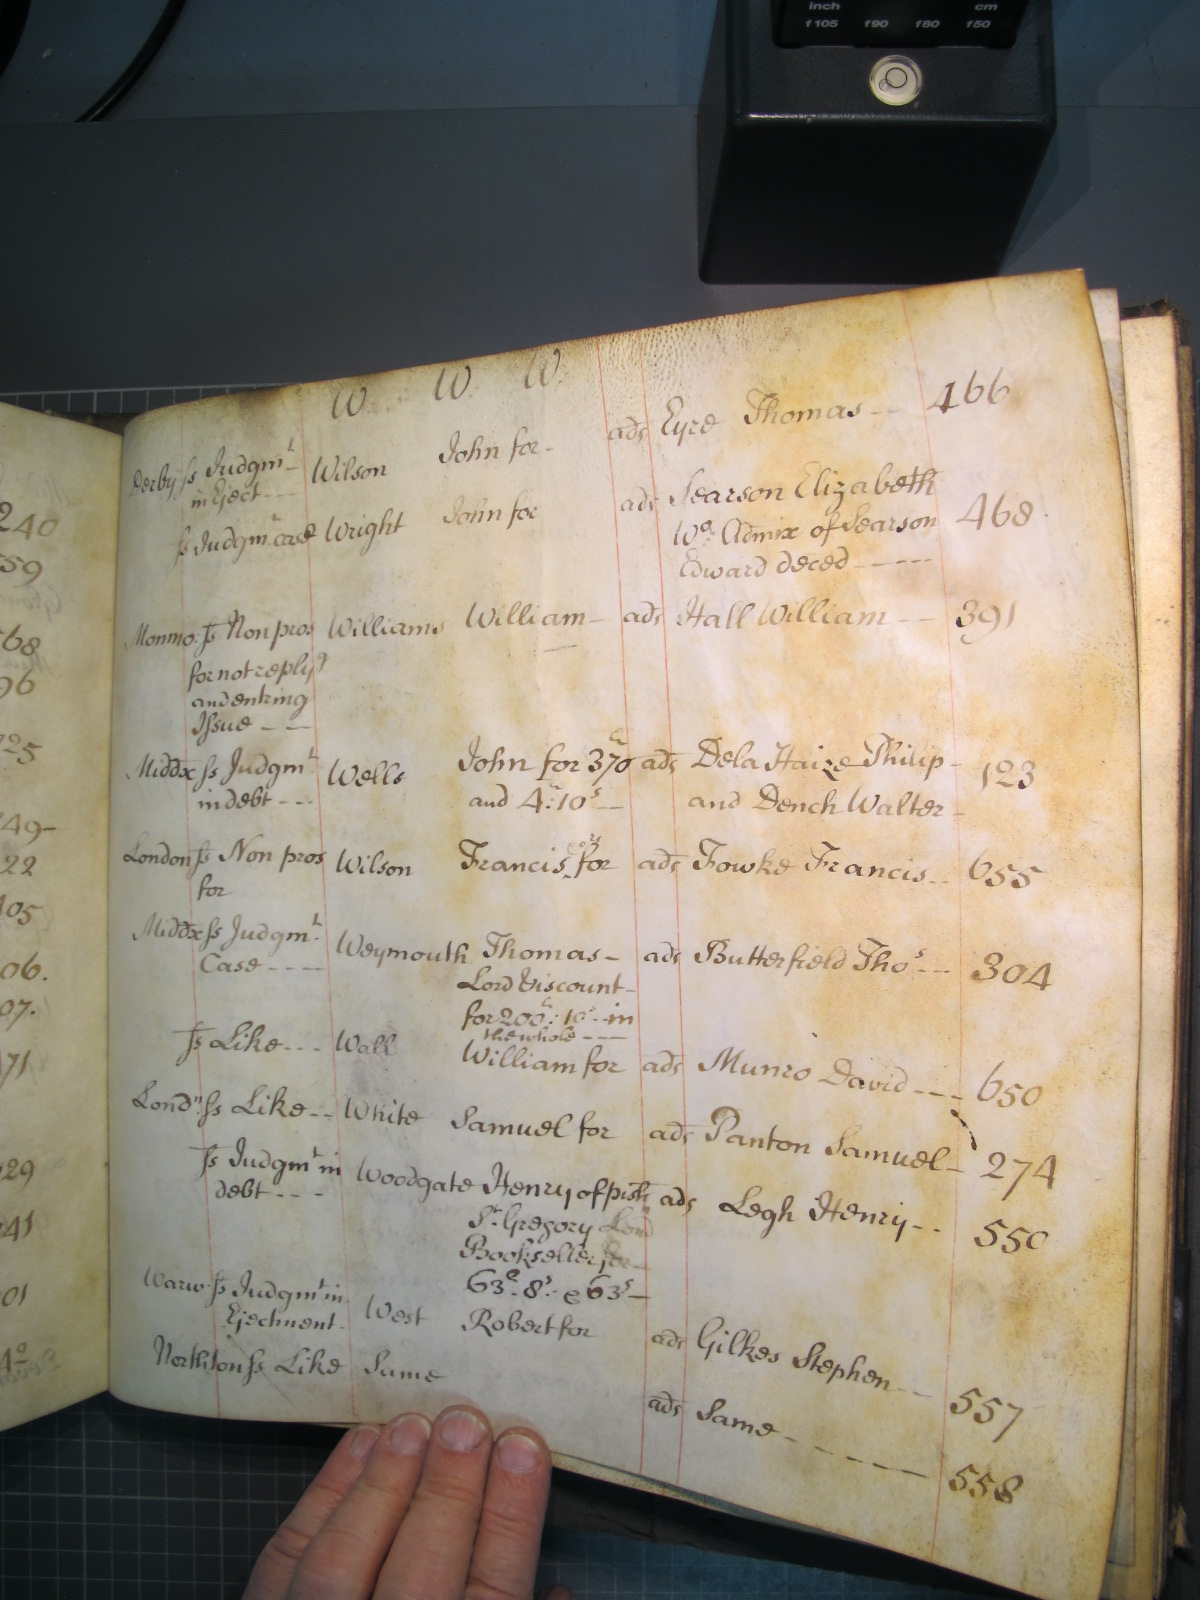 inch cm
f105 f90 f80 f50
W. W. W.
Derby ſs Judgmt Wilson John for - ads Eyre Thomas -- 466
in Eject ---
ſs Judgmt case Wright John for ads Searson Elizabeth 468
Wo. Admix of Searson
Edward deced -----
Monmo: ſs Non pros Williams William - ads Hall William --- 391
for not reply
and entring
Issue ---
Middx ſs Judgmt Wells John for 370 ads Dela Haize Philip - 123
in debt --- and 4: 10s - and Dench Walter -
London ſs Non pros Wilson Francis for ads Fowke Francis -- 655
for
Middx ſs Judgmt. Weymouth Thomas - ads Butterfield Thos --- 304
Case ---- Lord Viscount -
for 200: 10s in
the whole ---
ſs Like --- Wall William for ads Munro David --- 650
Lond ſs Like -- White Samuel for ads Panton Samuel - 274
ſs Judgmt in Woodgate Henry of pish ads Legh Henry -- 550
debt --- St. Gregory Lond
Bookseller for
63: 8s: & 63s -
Warw: ſs Judgmt in West Robert for ads Gilkes Stephen -- 557
Ejectment -
Northton ſs Like Same ads Same ------ 558
240
59
68
96
25
49-
22
05
06.
07.
71
29
41
01